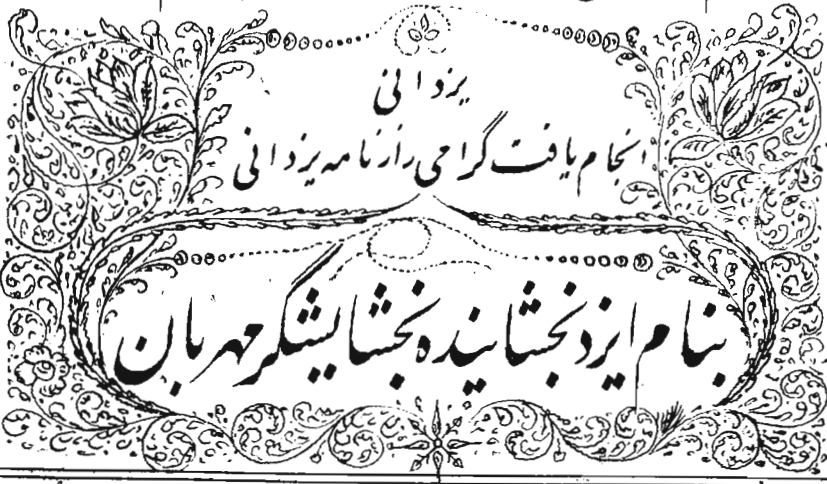 یزدانی
انجام یافت گرامی رازنامه یزدانی
بنام ایزد بخشاینده بخشایشگر مهربان